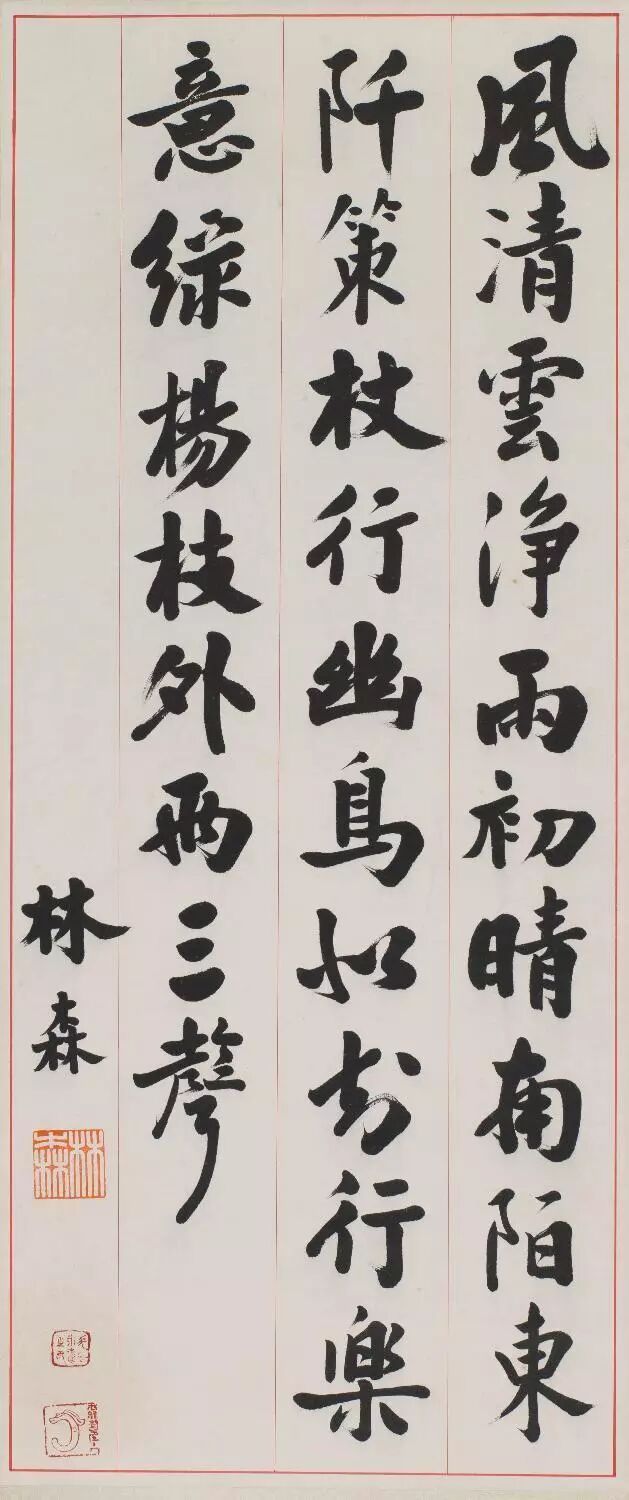 風清雲浄雨初晴南陌東
阡策杖行幽鳥似知行樂
意綠楊枝外两三聲
林森
林森